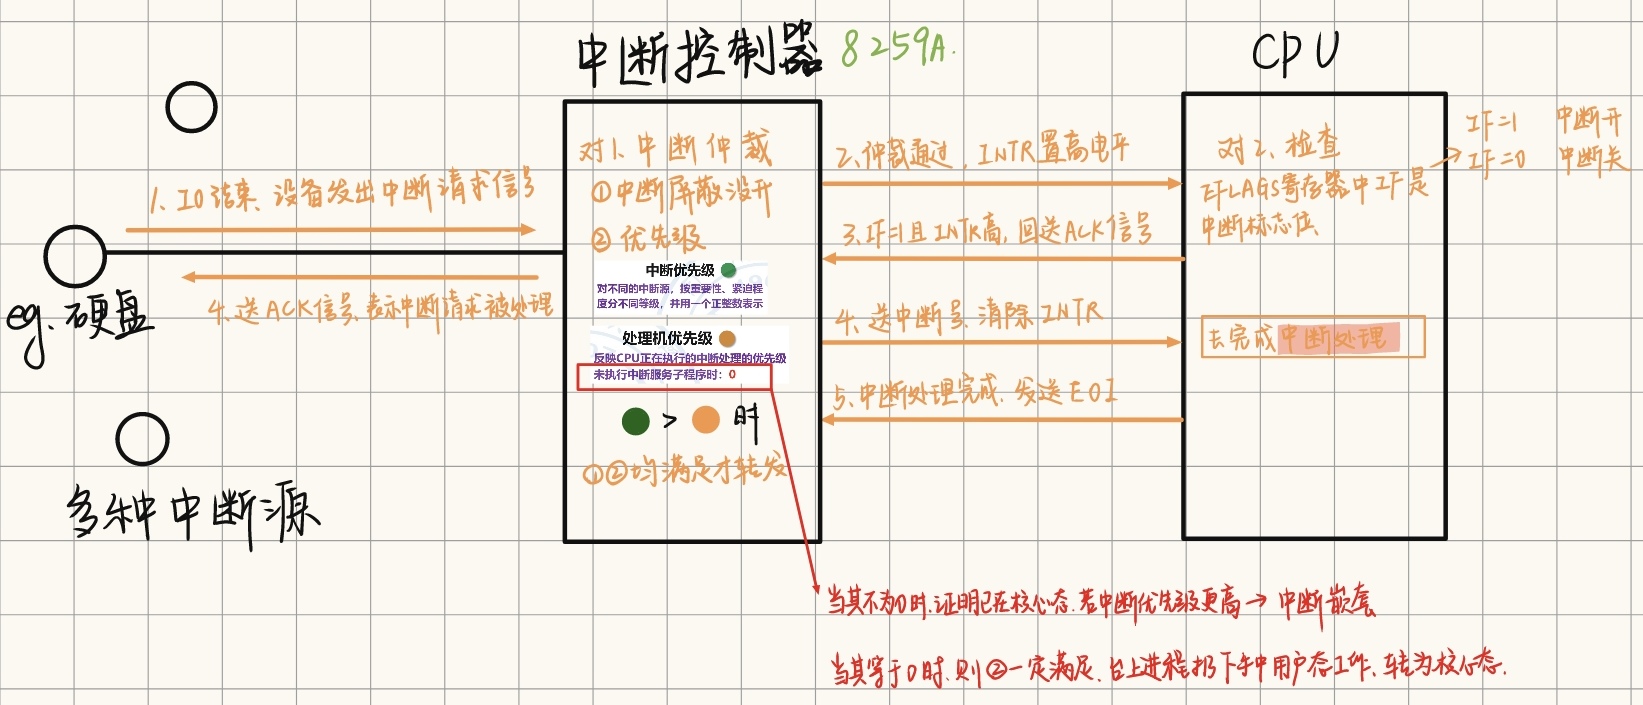 中断控制器 8259A.
CPU
1. IO结束、设备发出中断请求信号
4. 送ACK信号、表示中断请求被处理
eg. 硬盘
多种中断源
对1、中断仲裁
①中断屏蔽没开
②优先级
中断优先级
对不同的中断源，按重要性、紧迫程
度分不同等级，并用一个正整数表示
处理机优先级
反映CPU正在执行的中断处理的优先级
未执行中断服务子程序时：0
> 时
①②均满足才转发
2、仲裁通过，INTR置高电平
3、IF=1且INTR高，回送ACK信号
4、送中断号、清除INTR
5、中断处理完成、发送EOI
对2、检查
EFLAGS寄存器中IF是
中断标志位
去完成中断处理
IF=1 中断开
IF=0 中断关
当其不为0时、证明已在核心态、若中断优先级更高→中断嵌套
当其等于0时、则②一定满足、台上进程扔下手中用户态工作、转为核心态.